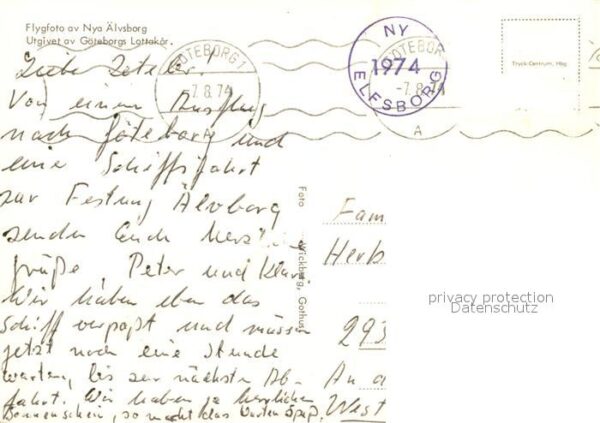 Flygfoto av Nya Älvsborg
Utgivet av Göteborgs Lottakår.
GÖTEBORG 1
-7.8.74
A
NY
1974
ELFSBORG
GÖTEBORG
-7.8.74
A
Tryck-Centrum, Hbg
Von einem Ausflug
nach Göteborg und
eine Schiffsfahrt
zur Festung Älvborg
senden Euch herzl.
Grüße, Peter und
Wir haben eben das
Schiff verpaßt und müssen
jetzt noch eine Stunde
warten, bis zur nächsten Ab-
fahrt. Wir haben ja herrlichen
Sonnenschein, so macht das Warten Spaß.
Foto Wickberg, Gothus
Fam
Herb
293
An
West
privacy protection
Datenschutz